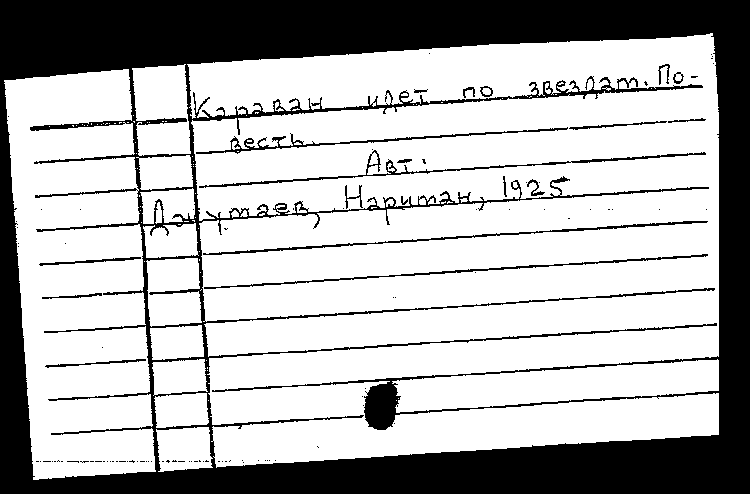 Караван идет по звездам. По-
весть.
Авт:
Нариман, 1925